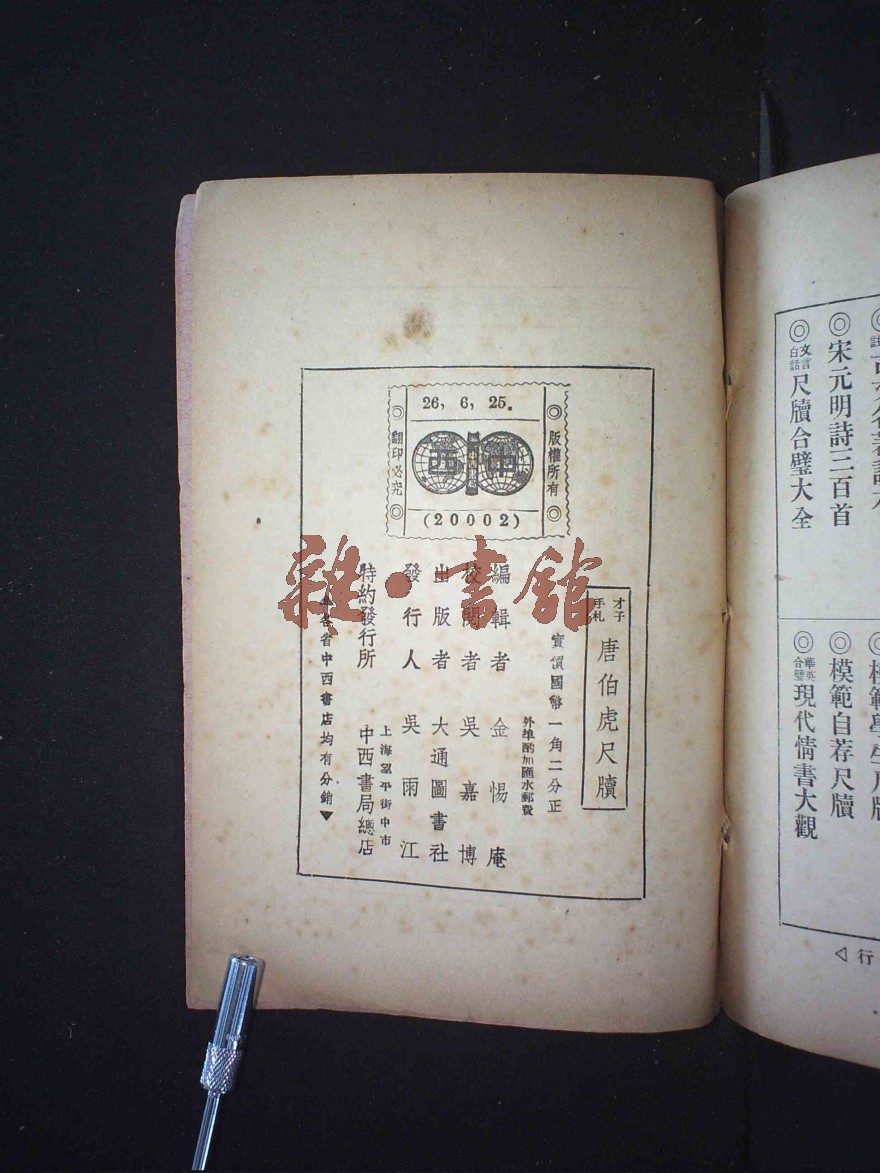 ◎宋元明詩三百首
◎文言白話尺牘合璧大全
◎模範自荐尺牘
◎華英合璧現代情書大觀
行
26, 6, 25.
版權所有
翻印必究
中西
(20002)
才子手札 唐伯虎尺牘
實價國幣一角二分正
外埠酌加匯水郵費
編輯者 金惕庵
校閱者 吳嘉博
出版者 大通圖書社
發行人 吳雨江
上海望平街中市
特約發行所 中西書局總店
各省中西書店均有分銷▼
雜·書館